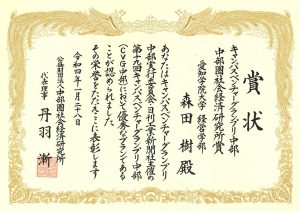 賞状
キャンパスベンチャーグランプリ中部
中部圏社会経済研究所賞
愛知学院大学 経営学部
森田 樹殿
あなたはキャンパスベンチャーグランプリ
中部実行委員会・日刊工業新聞社主催の
第十九回キャンパスベンチャーグランプリ中部
(CVG中部)において優秀なプランである
ことが認められました
その栄誉をたたえここに表彰します
令和四年一月二十八日
公益財団法人中部圏社会経済研究所
代表理事 丹羽 漸